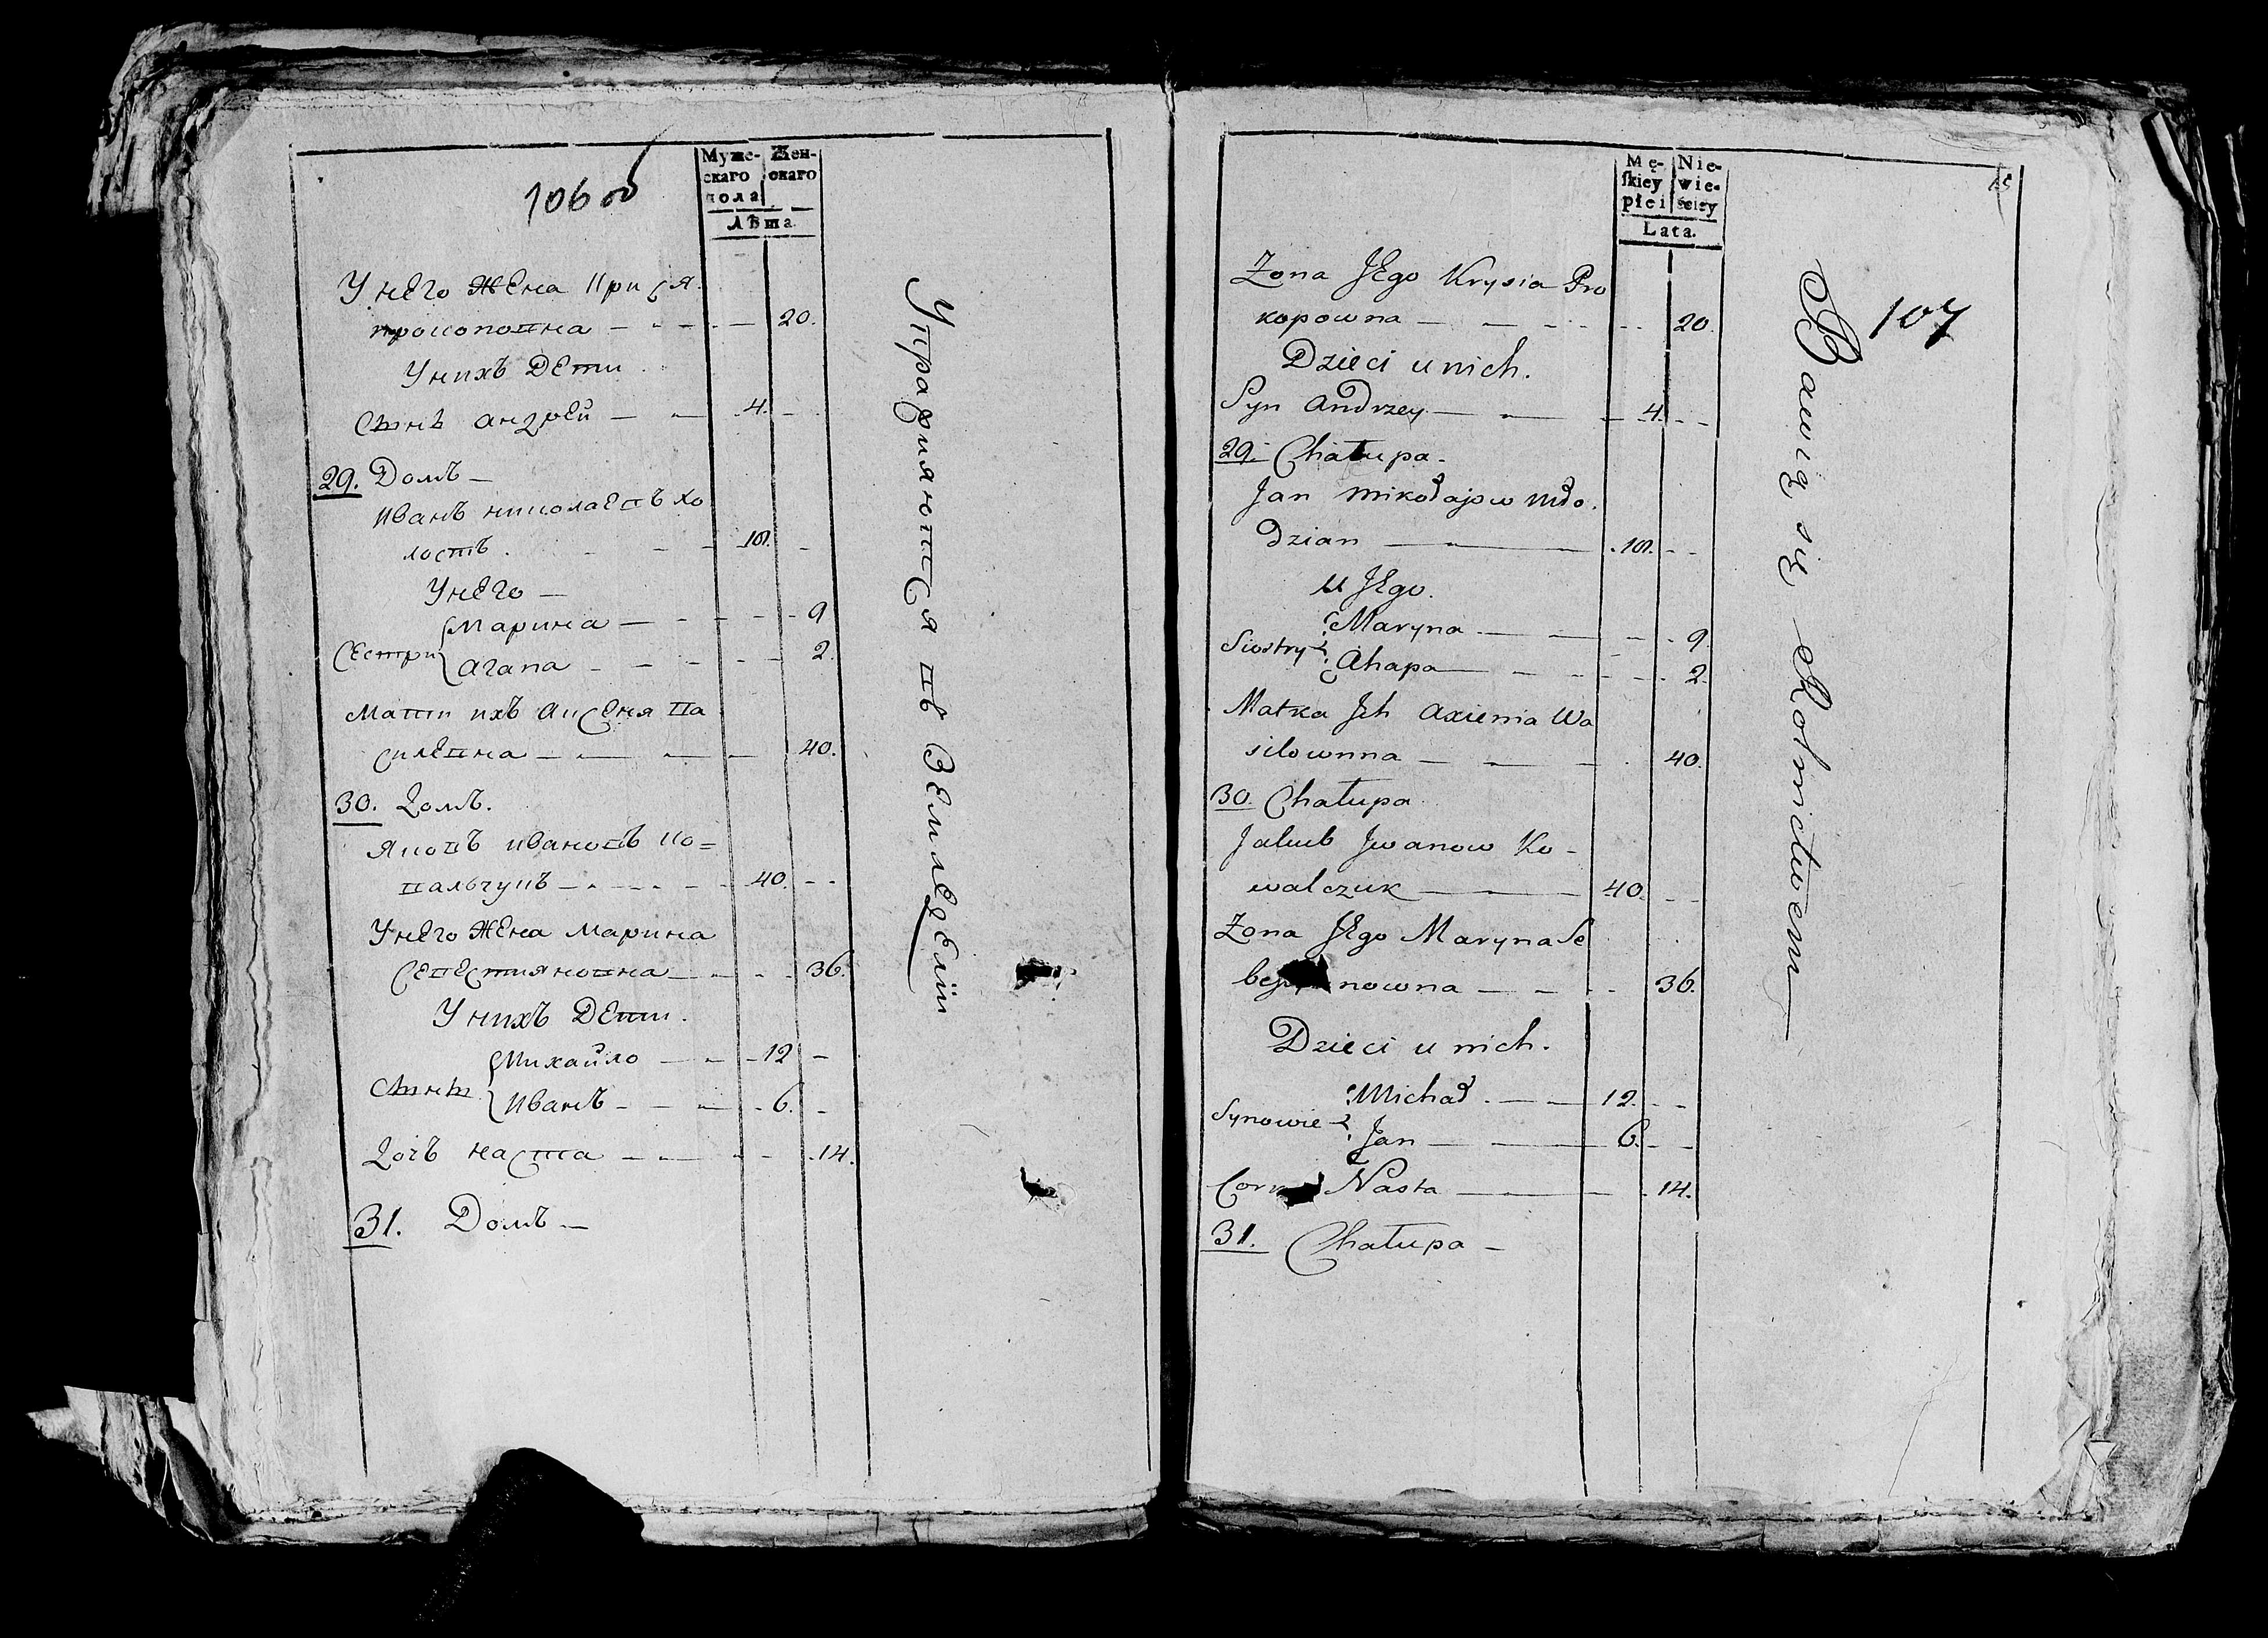 106 об
Муже-
скаго
пола
Жен-
скаго
Лѣта.
У него жена Крися
прокоповна — 20.
У нихъ дети.
Сынъ андрей — 4.
29. Домъ —
иванъ николаевъ хо
лостъ. — 18.
У него —
Сестри { Марина — 9
агапа — 2.
Мати ихъ аксеня Ва
силевна — 40.
30. Домъ.
яковъ ивановъ Ко=
вальчукъ — 40.
У него жена марина
Севестияновна — 36.
У нихъ дети.
Сыны { Михайло — 12
иванъ — 6.
Дочъ наста — 14.
31. Домъ —
Упражняются въ Земледелiи
Mę-
skiey
płci
Nie-
wie-
ściey
Lata.
107
Zona Jego Krysia Pro
kopowna — 20.
Dzieci u nich.
Syn Andrzey — 4.
29. Chałupa.
Jan Mikołajow Mło.
dzian — 18.
u Jego.
Siostry { Maryna — 9.
Ahapa — 2.
Matka Jch Axienia Wa
silownna — 40.
30. Chałupa
Jakub Jwanow Ko-
walczuk — 40.
Zona Jego Maryna Se
be nowna — 36.
Dzieci u nich.
Synowie { Michał — 12.
Jan — 6.
Cor Nasta — 14.
31. Chałupa —
Bawią się Rolnictwem